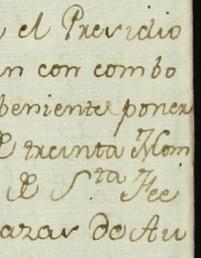 el Previdio
n con combo
beniente poner
E treinta Hom
E S.ta Fee
azar De Au